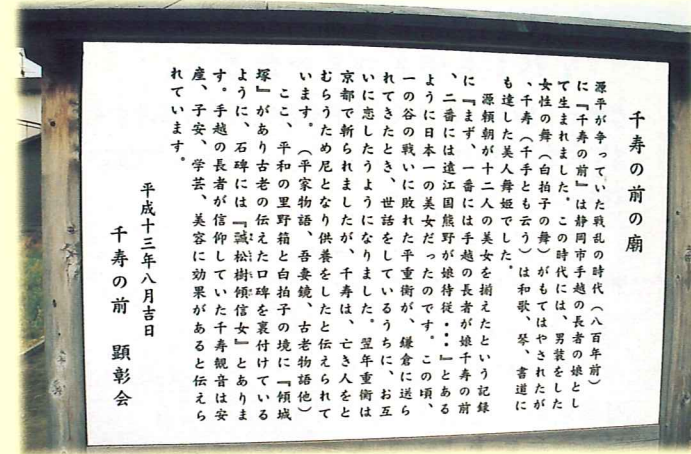 千寿の前の廟
源平が争っていた戦乱の時代（八百年前）
に『千寿の前』は静岡市手越の長者の娘とし
て生まれました。この時代には、男装をした
女性の舞（白拍子の舞）がもてはやされたが
、千寿（千手とも云う）は和歌、琴、書道に
も達した美人舞姫でした。
源頼朝が十二人の美女を揃えたという記録
に『まず、一番には手越の長者が娘千寿の前
、二番には遠江国熊野が娘待従・・・』とある
ように日本一の美女だったのです。この頃、
一の谷の戦いに敗れた平重衡が、鎌倉に送ら
れてきたとき、世話をしているうちに、お互
いに恋したうようになりました。翌年重衡は
京都で斬られましたが、千寿は、亡き人をと
むらうため尼となり供養をしたと伝えられて
います。（平家物語、吾妻鏡、古老物語他）
ここ、平和の里野箱と白拍子の境に『傾城
塚』があり古老の伝えた口碑を裏付けている
ように、石碑には『誠松樹傾信女』とありま
す。手越の長者が信仰していた千寿観音は安
産、子安、学芸、美容に効果があると伝えら
れています。
平成十三年八月吉日
千寿の前 顕彰会